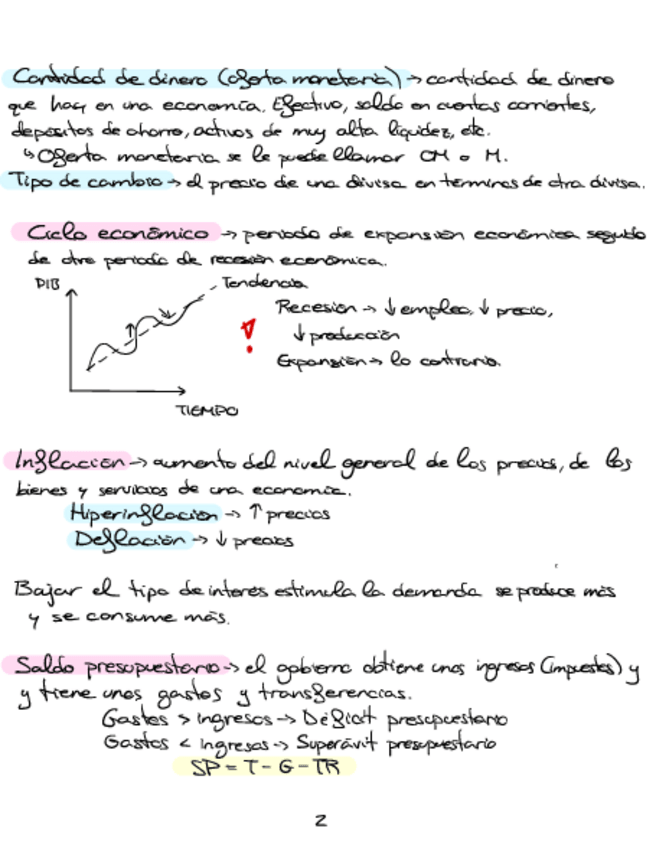 Cantidad de dinero (oferta monetaria) → cantidad de dinero
que hay en una economía. Efectivo, saldo en cuentas corrientes,
depósitos de ahorro, activos de muy alta liquidez, etc.
↳ Oferta monetaria se le puede llamar OM o M.
Tipo de cambio → el precio de una divisa en términos de otra divisa.
Ciclo económico → periodo de expansión económica seguido
de otro periodo de recesión económica.
PIB
Tendencia
Recesión → ↓ empleo, ↓ precio,
↓ producción
!
Expansión → lo contrario.
TIEMPO
Inflación → aumento del nivel general de los precios, de los
bienes y servicios de una economía.
Hiperinflación → ↑ precios
Deflación → ↓ precios
Bajar el tipo de interes estimula la demanda se produce más
y se consume más.
Saldo presupuestario → el gobierno obtiene unos ingresos (impuestos) y
y tiene unos gastos y transferencias.
Gastos > ingresos → Déficit presupuestario
Gastos < ingresos → Superávit presupuestario
SP = T - G - TR
2